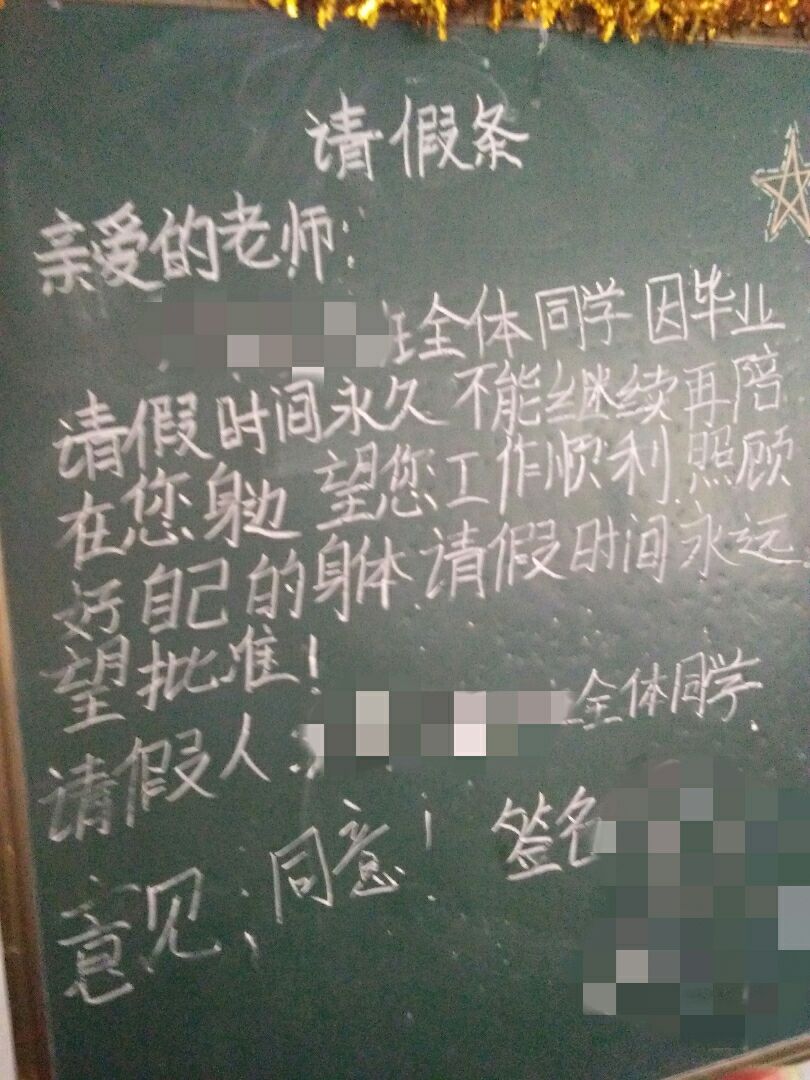 请假条
亲爱的老师:
班全体同学因毕业
请假时间永久不能继续再陪
在您身边 望您工作顺利照顾
好自己的身体请假时间永远
望批准!
请假人: 全体同学
意见:同意! 签名